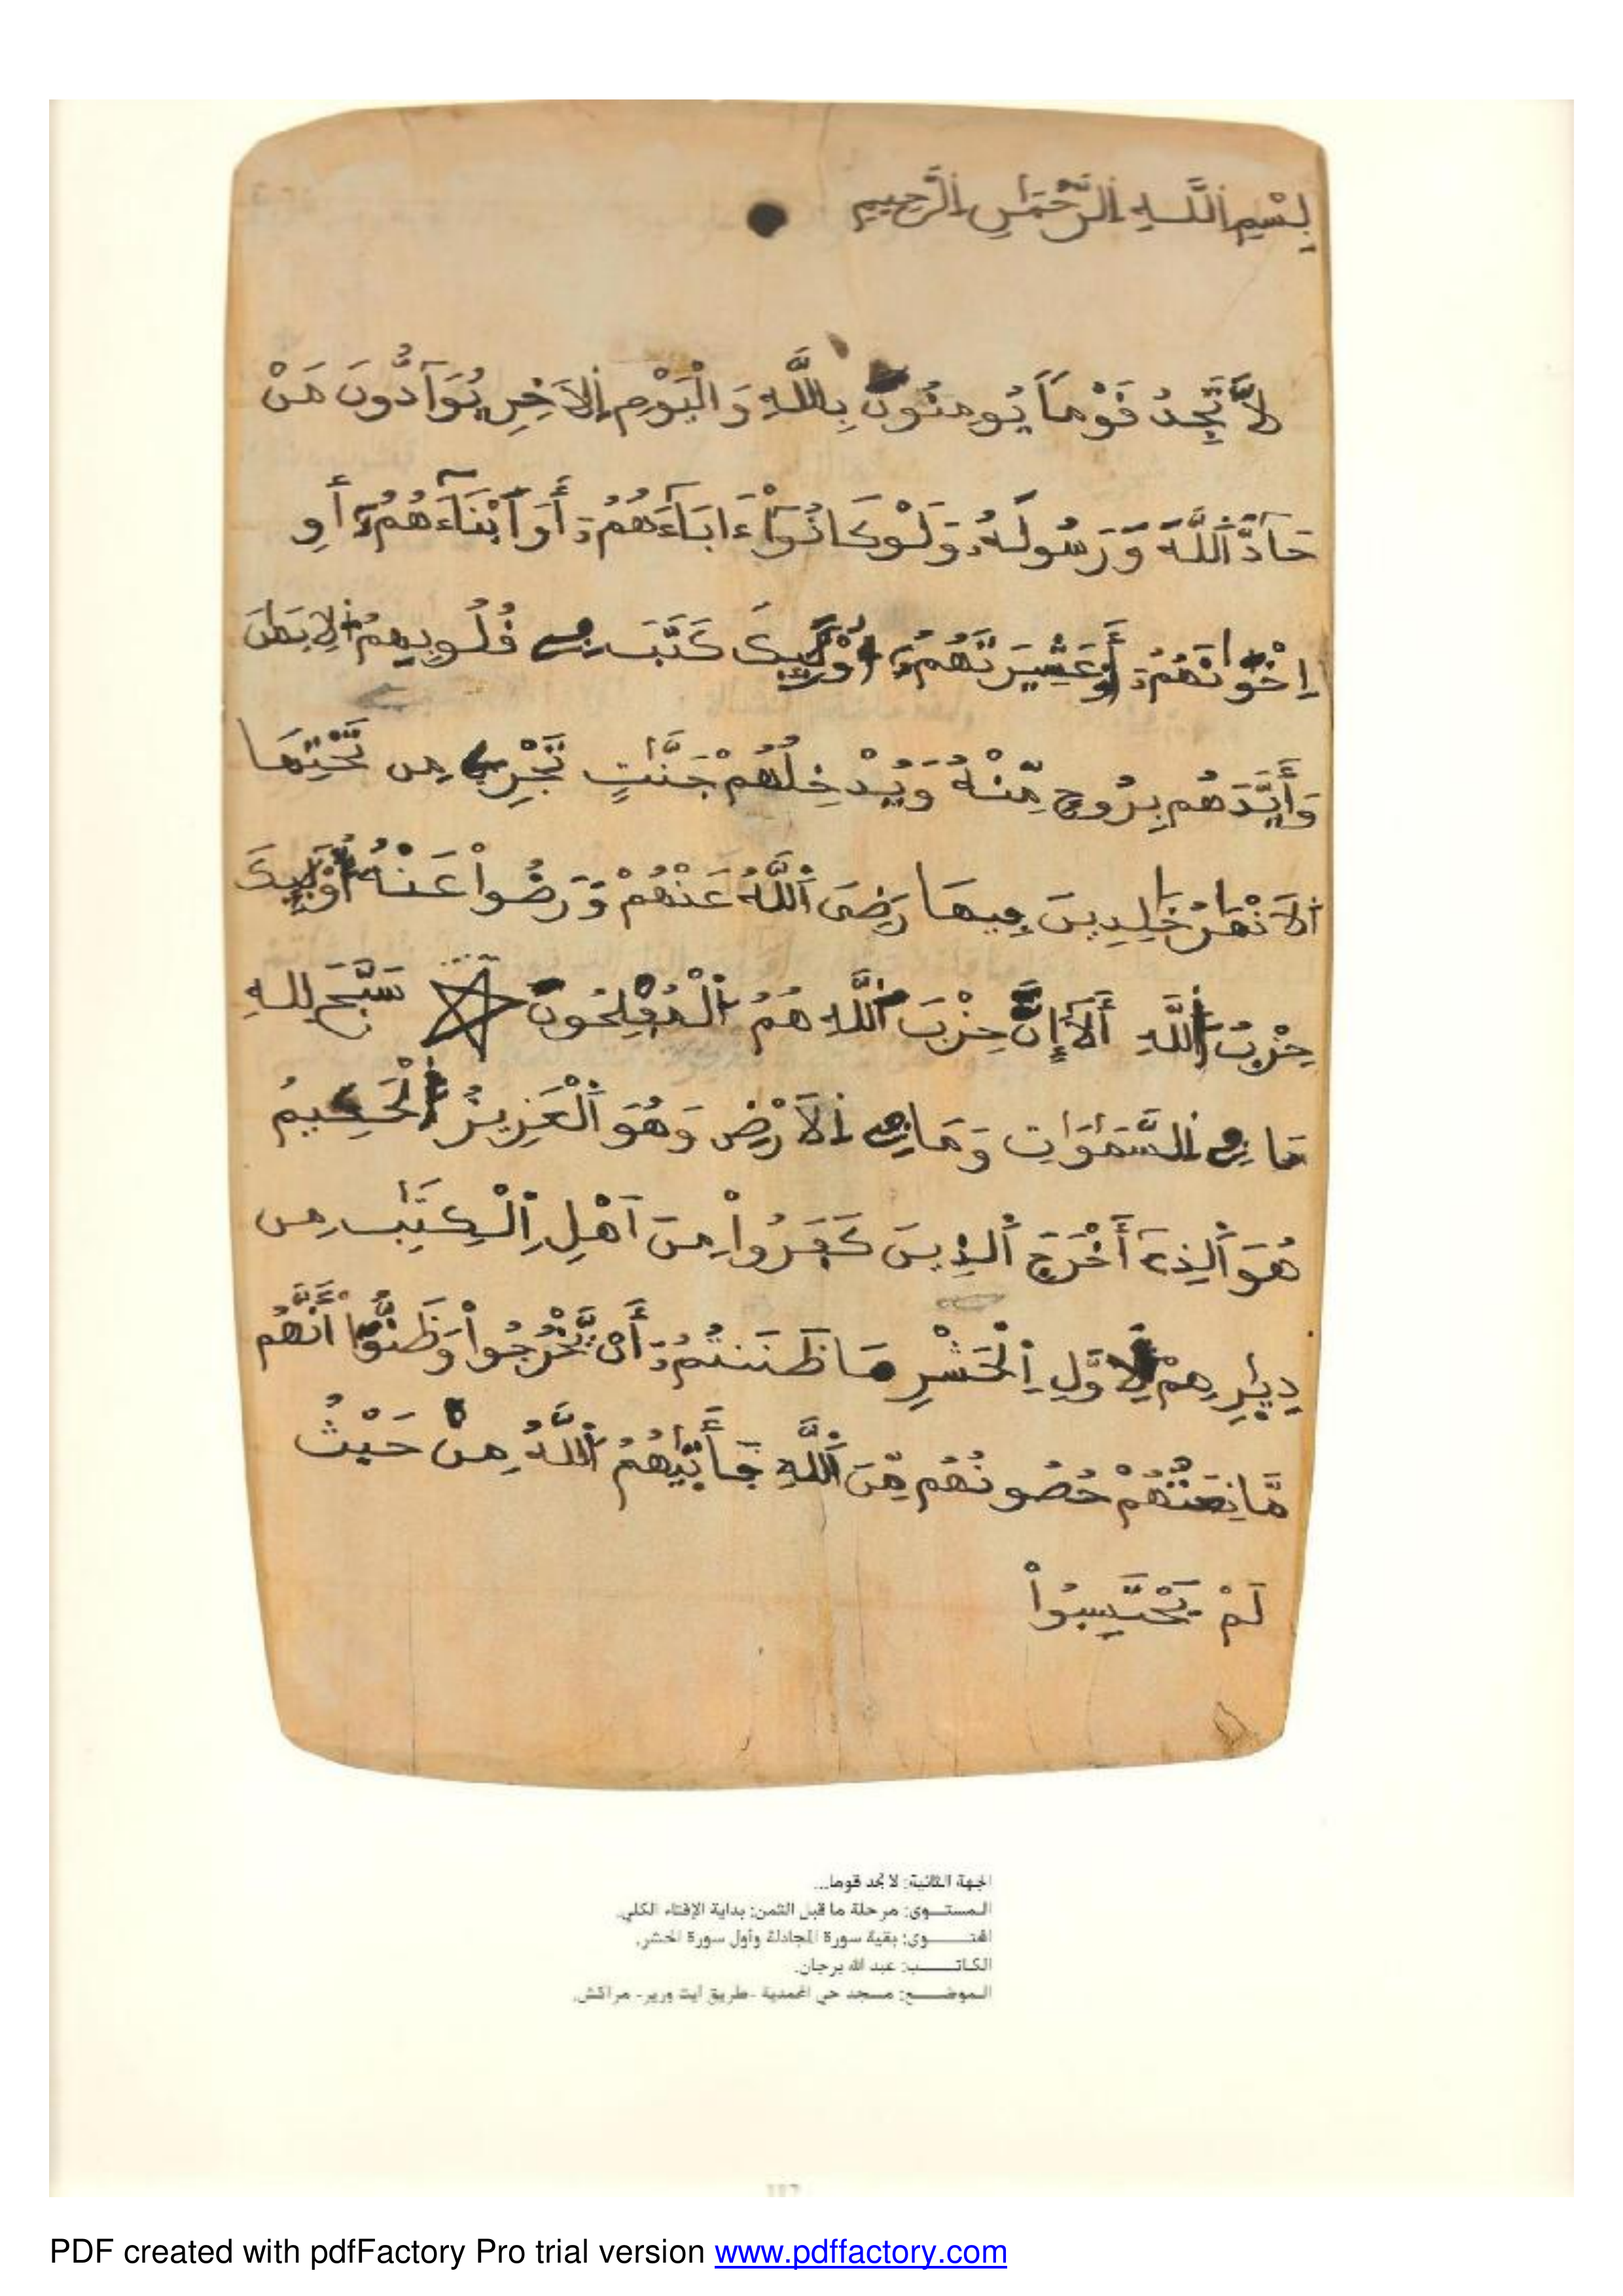 بِسْمِ اللَّهِ الرَّحْمَٰنِ الرَّحِيمِ
لَّا تَجِدُ قَوْمًا يُومِنُونَ بِاللَّهِ وَالْيَوْمِ اِلَاخِرِ يُوَآدُّونَ مَنْ
حَآدَّ اَللَّهَ وَرَسُولَهُۥ وَلَوْ كَانُوٓاْ ءَابَآءَهُمُۥٓ أَوَ اَبْنَآءَهُمُۥٓ أَوِ
اِخْوَٰنَهُمُۥٓ أَوْ عَشِيرَتَهُمُۥٓ أُوْلَٰٓئِكَ كَتَبَ فِے قُلُوبِهِمُ اُلِايمَٰنَ
وَأَيَّدَهُم بِرُوحٍ مِّنْهُ وَيُدْخِلُهُمْ جَنَّٰتٍ تَجْرِے مِن تَحْتِهَا
اَلَانْهَٰرُ خَٰلِدِينَ فِيهَا رَضِيَ اَللَّهُ عَنْهُمْ وَرَضُواْ عَنْهُ أُوْلَٰٓئِكَ
حِزْبُ اُللَّهِ أَلَآ إِنَّ حِزْبَ اَللَّهِ هُمُ اُلْمُفْلِحُونَ سَبَّحَ لِلهِ
مَا فِے اِلسَّمَٰوَٰتِ وَمَا فِے اِلَارْضِ وَهُوَ اَلْعَزِيزُ اُلْحَكِيمُ
هُوَ اَلذِےٓ أَخْرَجَ اَلذِينَ كَفَرُواْ مِنَ اَهْلِ اِلْكِتَٰبِ مِن
دِيٰ۪رِهِمْ لِأَوَّلِ اِلْحَشْرِ مَا ظَنَنتُمُۥٓ أَنْ يَّخْرُجُواْ وَظَنُّوٓاْ أَنَّهُم
مَّانِعَتُهُمْ حُصُونُهُم مِّنَ اَللَّهِ فَأَت۪يٰهُمُ اُللَّهُ مِنْ حَيْثُ
لَمْ يَحْتَسِبُواْ
الجهة الثانية: لا تجد قوما...
المستــوى: مرحلة ما قبل الثمن: بداية الإفتاء الكلي.
المحتــــوى: بقية سورة المجادلة وأول سورة الحشر.
الكاتــــب: عبد الله برجان.
الموضــــع: مسجد حي المحمدية -طريق آيت ورير- مراكش.
117
PDF created with pdfFactory Pro trial version www.pdffactory.com